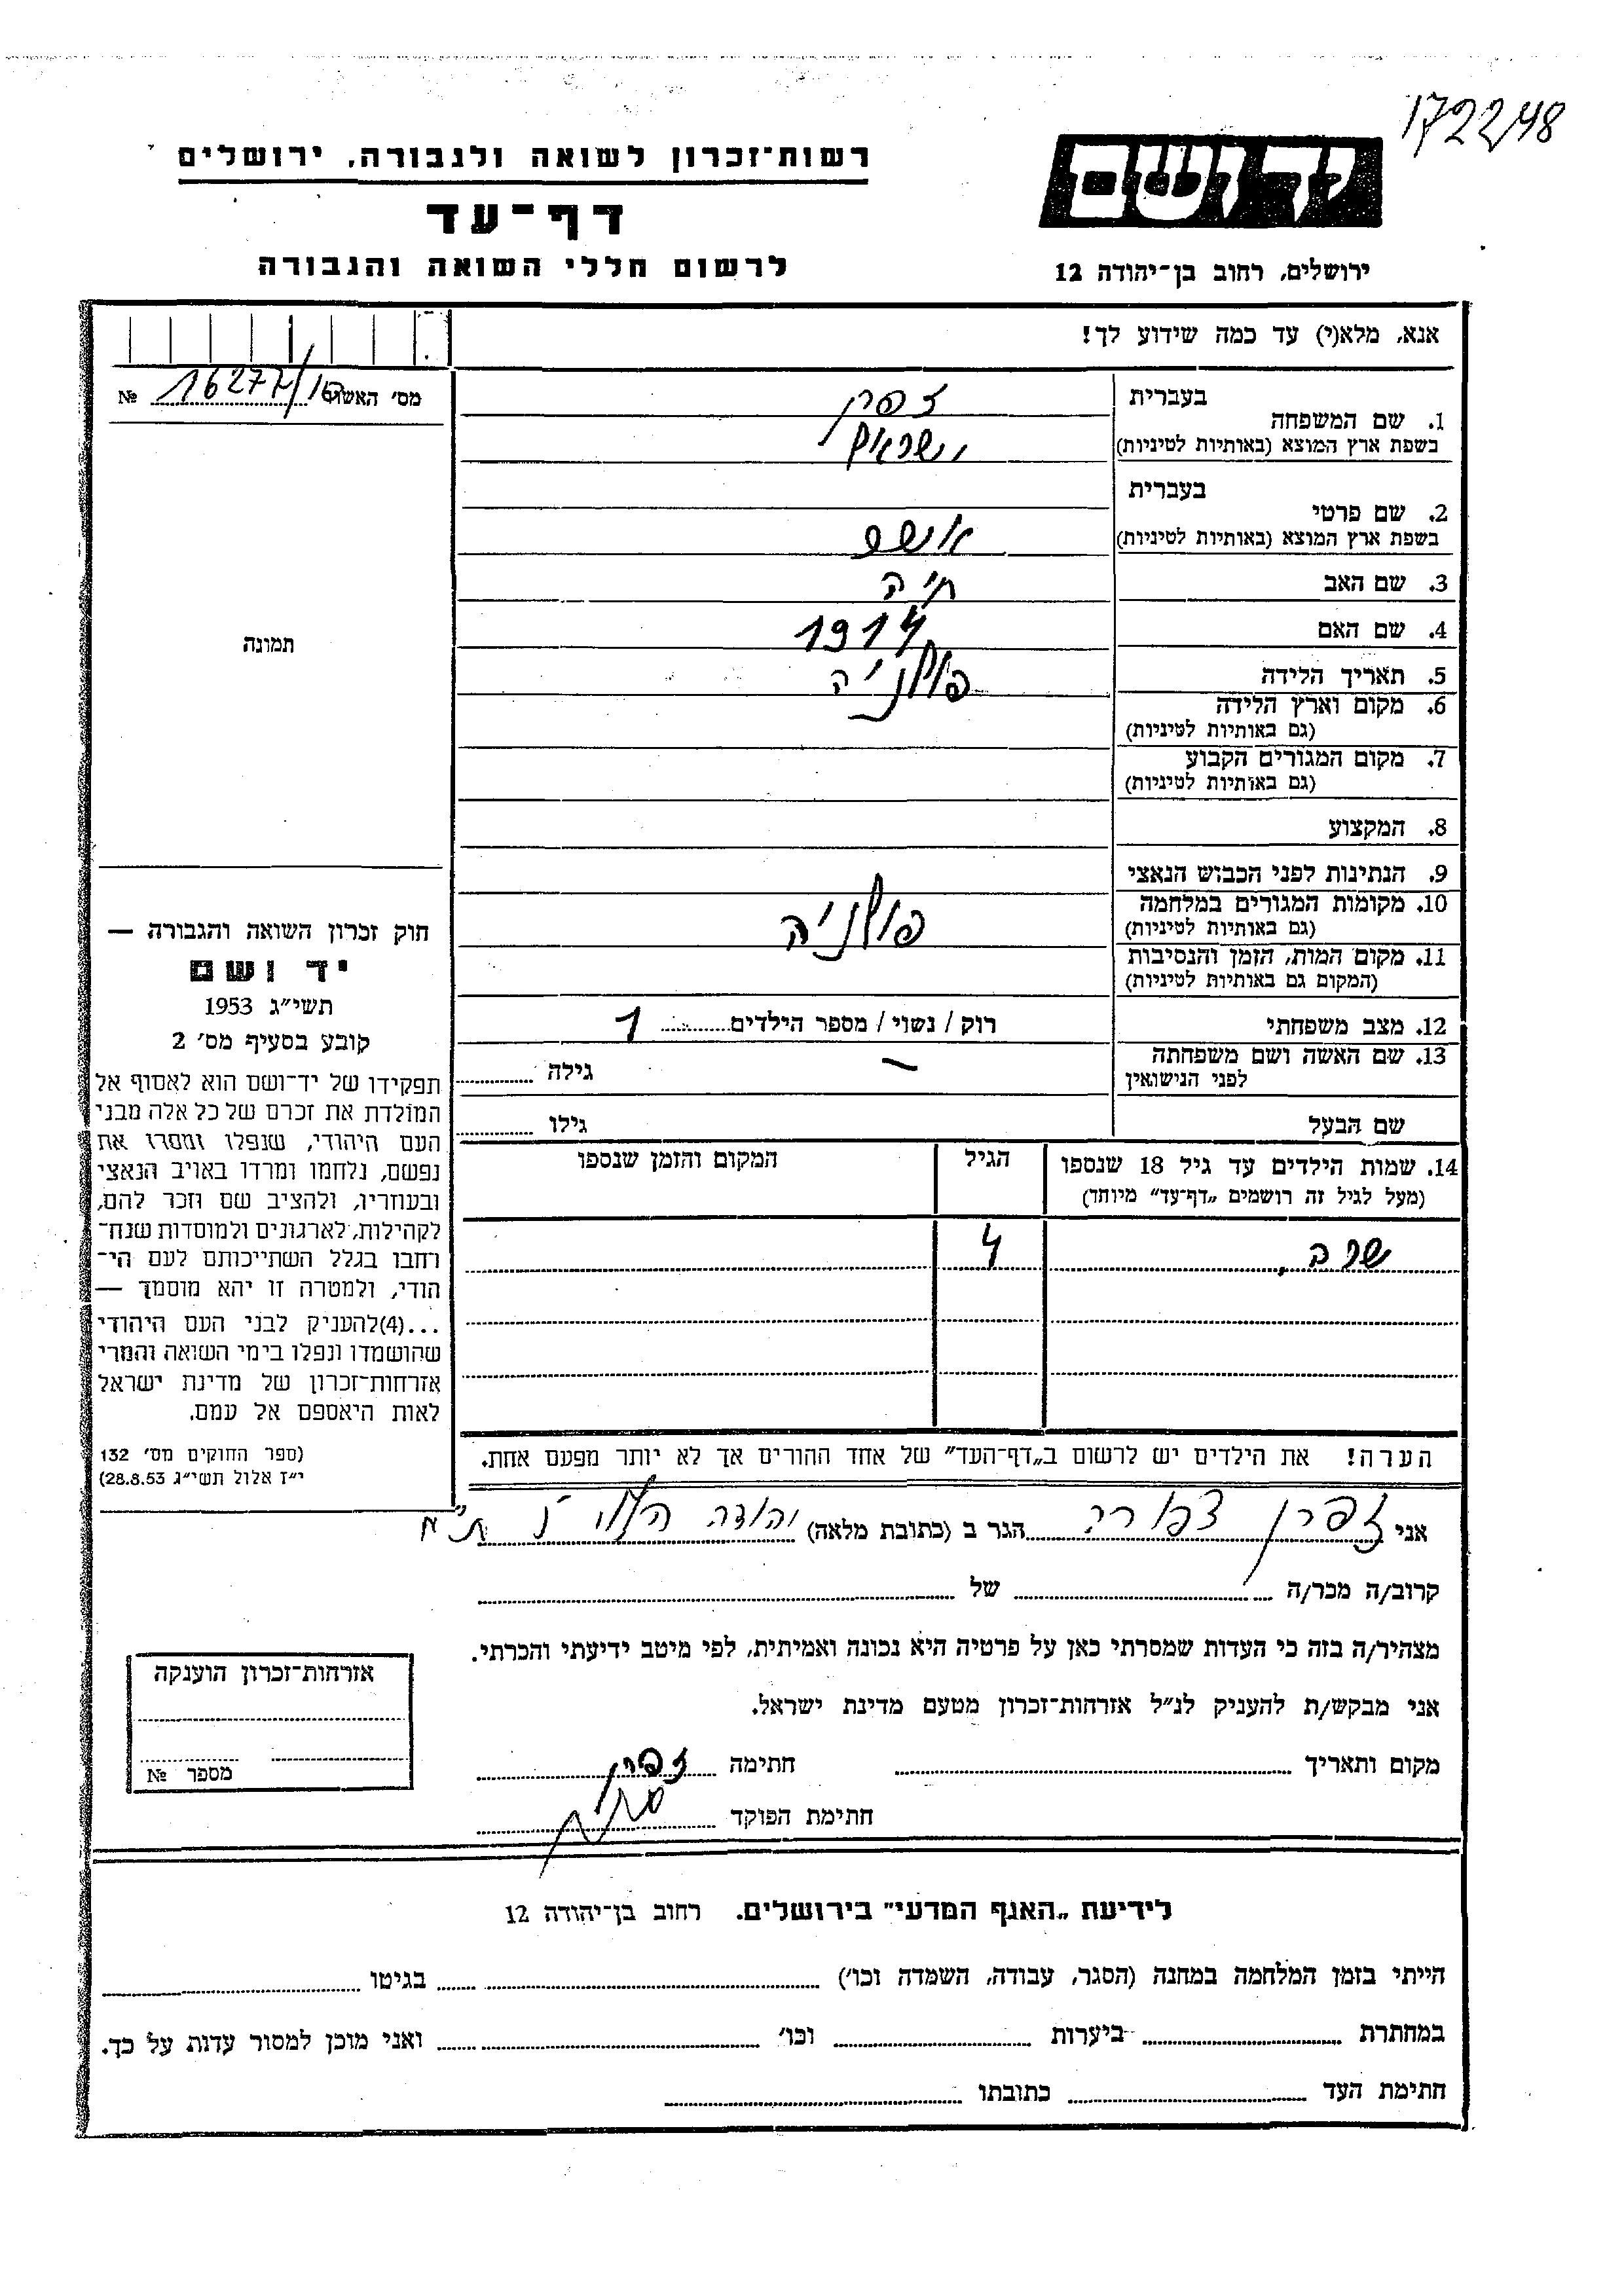 172248
ידושם
רשות־זכרון לשואה ולגבורה, ירושלים
דף־עד
לרשום חללי השואה והגבורה
ירושלים, רחוב בן־יהודה 12
אנא, מלא(י) עד כמה שידוע לך!
מס׳ האשה № 16277/
בעברית
1. שם המשפחה זפרן
בשפת ארץ המוצא (באותיות לטיניות) ישראל
בעברית
2. שם פרטי
בשפת ארץ המוצא (באותיות לטיניות) אשר
3. שם האב חיה
4. שם האם 1914
5. תאריך הלידה פולניה
6. מקום וארץ הלידה
(גם באותיות לטיניות)
7. מקום המגורים הקבוע
(גם באותיות לטיניות)
8. המקצוע
9. הנתינות לפני הכבוש הנאצי
10. מקומות המגורים במלחמה פולניה
(גם באותיות לטיניות)
11. מקום המות, הזמן והנסיבות
(המקום גם באותיות לטיניות)
12. מצב משפחתי רוק / נשוי / מספר הילדים 1
13. שם האשה ושם משפחתה – גילה
לפני הנישואין
שם הבעל גילו
14. שמות הילדים עד גיל 18 שנספו הגיל המקום והזמן שנספו
(מעל לגיל זה רושמים „דף־עד״ מיוחד)
שרה 4
הערה! את הילדים יש לרשום ב„דף־העד״ של אחד ההורים אך לא יותר מפעם אחת.
תמונה
חוק זכרון השואה והגבורה —
יד ושם
תשי״ג 1953
קובע בסעיף מס׳ 2
תפקידו של יד־ושם הוא לאסוף אל
המולדת את זכרם של כל אלה מבני
העם היהודי, שנפלו ומסרו את
נפשם, נלחמו ומרדו באויב הנאצי
ובעוזריו, ולהציב שם וזכר להם,
לקהילות, לארגונים ולמוסדות שנח־
רחבו בגלל השתייכותם לעם הי־
הודי, ולמטרה זו יהא מוסמך —
...(4)להעניק לבני העם היהודי
שהושמדו ונפלו בימי השואה והמרי
אזרחות־זכרון של מדינת ישראל
לאות היאספם אל עמם.
(ספר החוקים מס׳ 132
י״ז אלול תשי״ג 28.8.53)
אני זפרן צפורה הגר ב (כתובת מלאה) יהודה הלוי
קרוב/ה מכר/ה של
מצהיר/ה בזה כי העדות שמסרתי כאן על פרטיה היא נכונה ואמיתית, לפי מיטב ידיעתי והכרתי.
אני מבקש/ת להעניק לנ״ל אזרחות־זכרון מטעם מדינת ישראל.
מקום ותאריך חתימה זפרן
חתימת הפוקד
אזרחות־זכרון הוענקה
מספר №
לידיעת „האגף המדעי״ בירושלים. רחוב בן־יהודה 12
הייתי בזמן המלחמה במחנה (הסגר, עבודה, השמדה וכו׳) בגיטו
במחתרת ביערות וכו׳ ואני מוכן למסור עדות על כך.
חתימת העד כתובתו